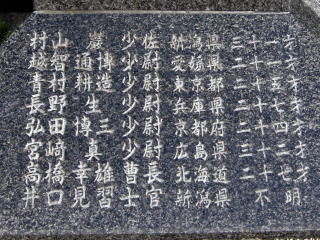 村山巖少佐新潟県三十一才
越智通博少尉愛媛県二十一才
青村耕造少尉東京都二十五才
長野生少尉兵庫県二十七才
弘田博三少尉京都府二十四才
宮崎真少尉広島県二十二才
高橋幸雄曹長北海道二十七才
井口見習士官新潟県不明